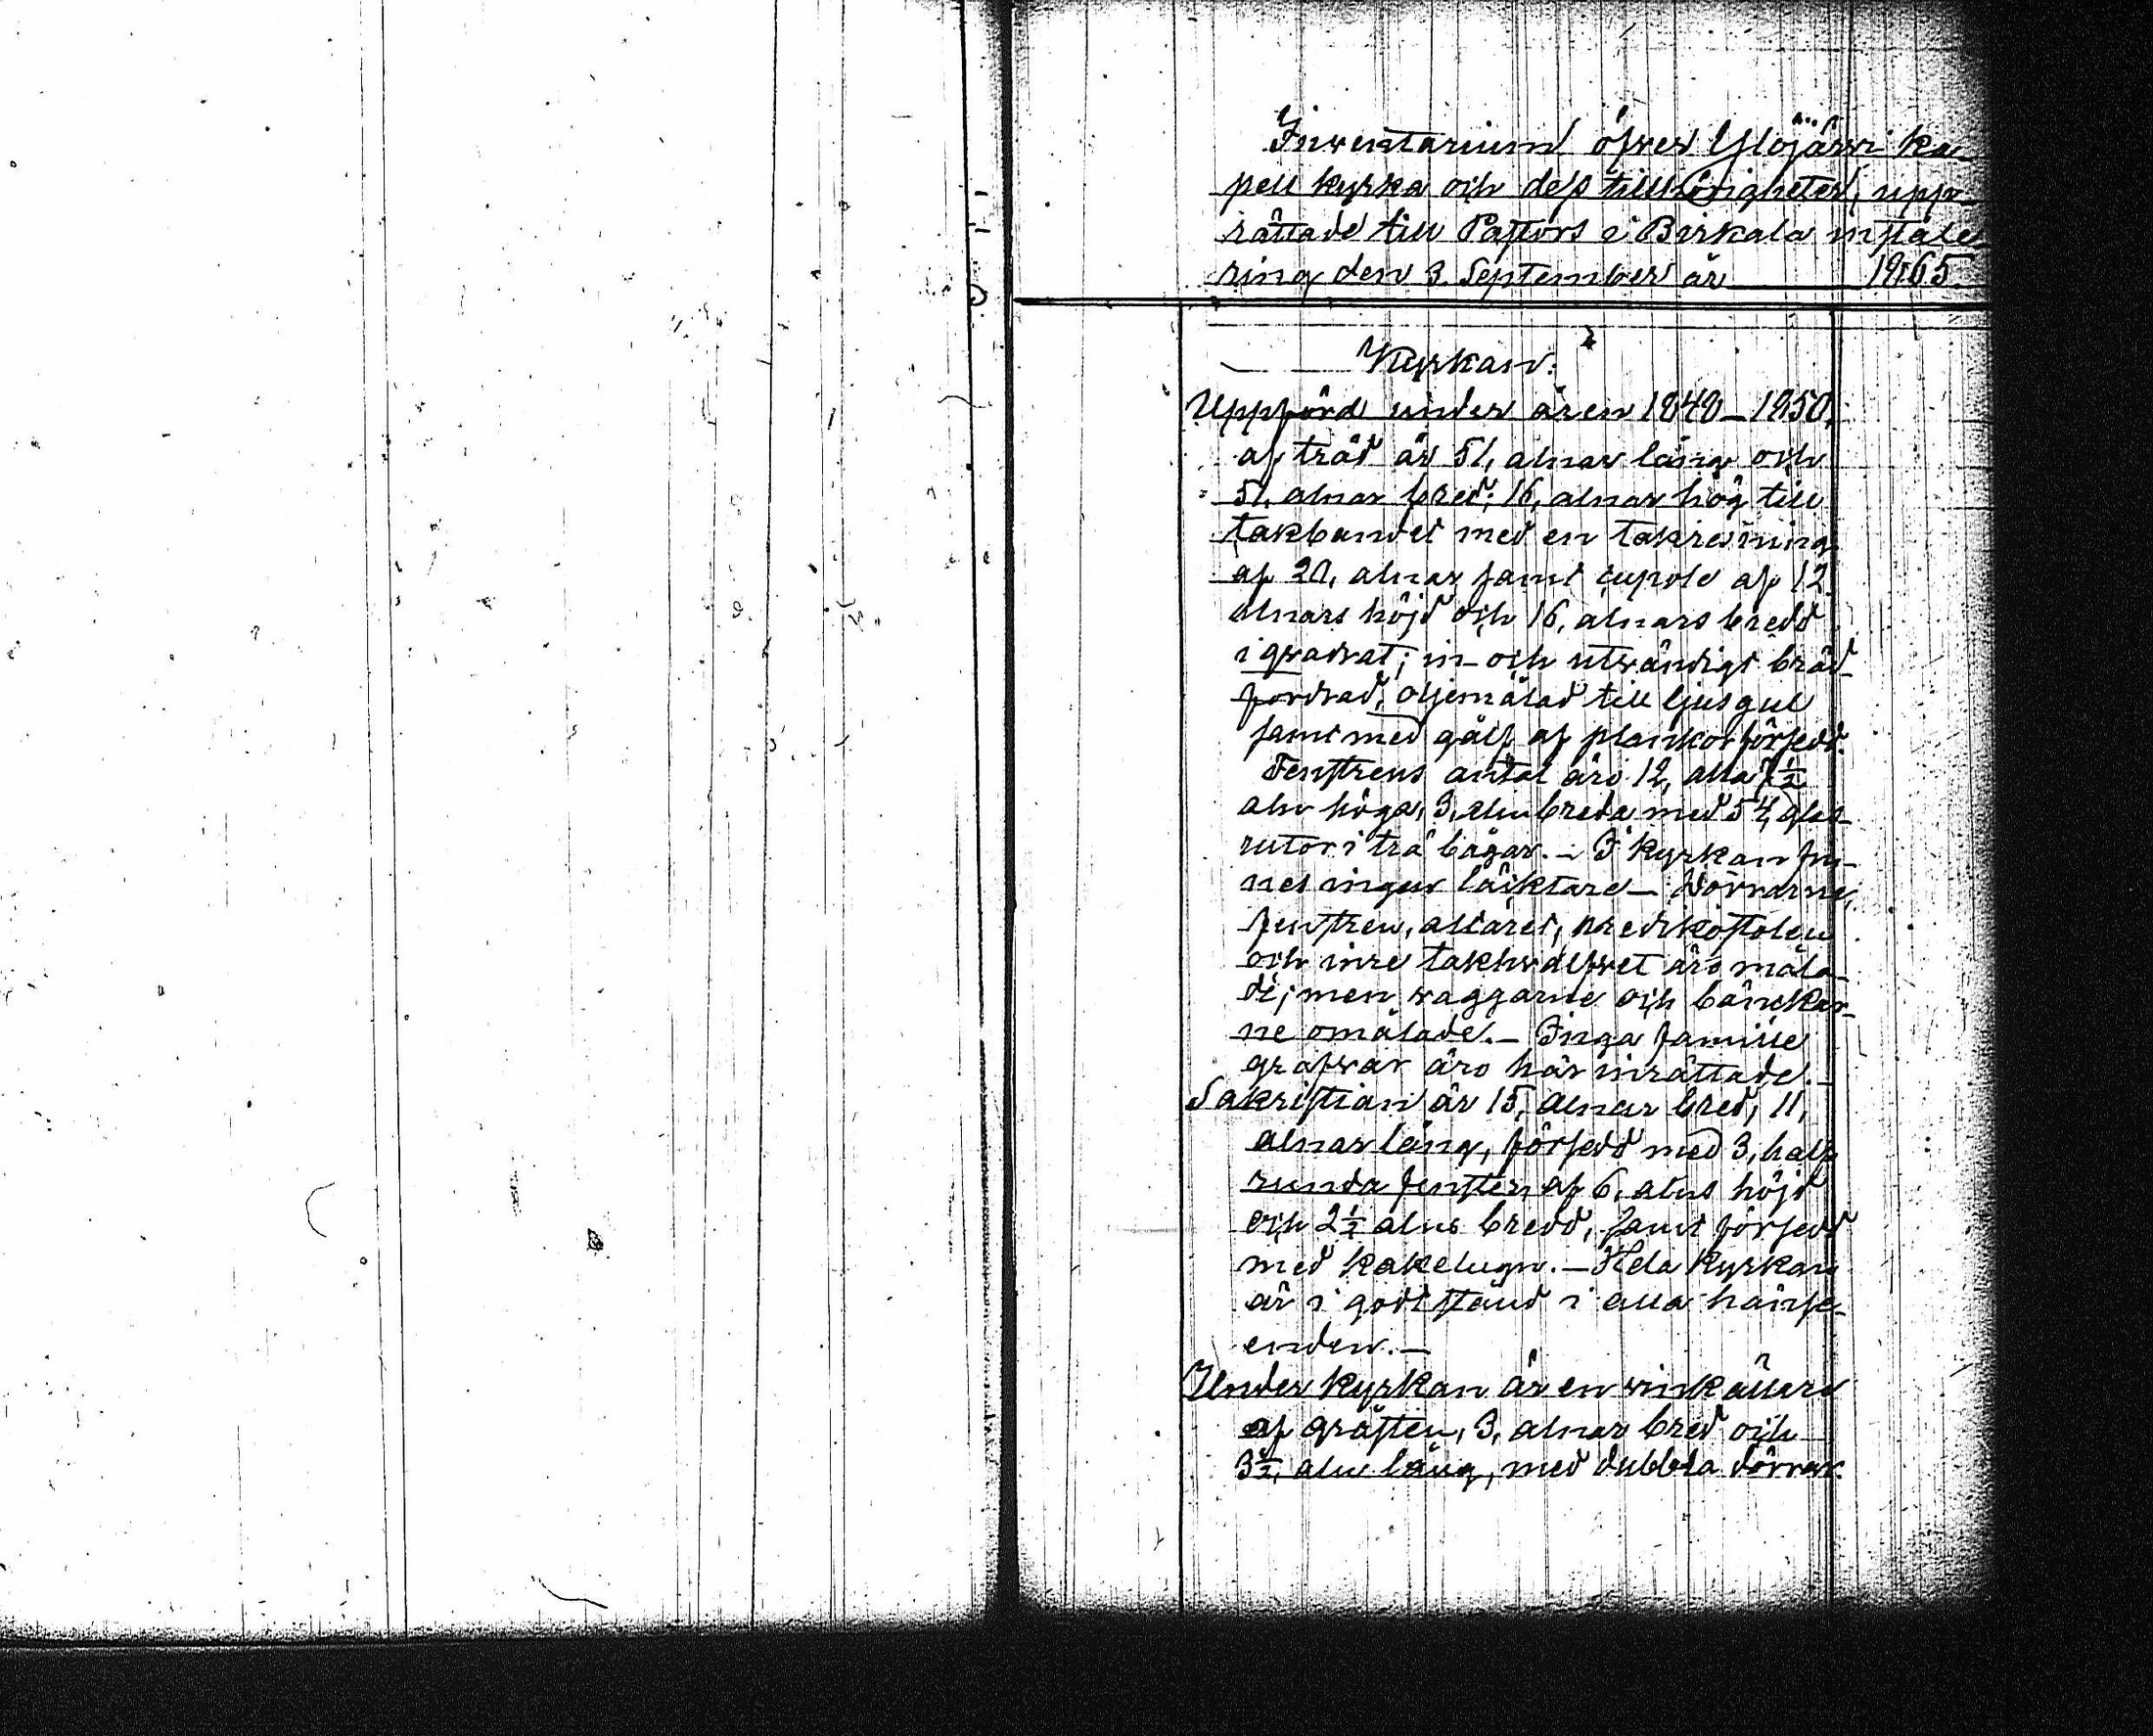 Inventarium öfver Ylöjärvi ka-
pell kyrka och dess tillhörigheter, upp-
rättade till Pastors i Birkala install-
ring den 3. September år 1865.
Kyrkan.
Uppförd under åren 1848–1850,
af träd är 51, alnar lång och
51, alnar bred; 16, alnar hög till
takbandet med en takresning
af 20, alnar samt cupole af 12
alnars höjd och 16, alnars bredd
i qvadrat; in- och utvändigt bräd-
fordrad, oljemålad till ljusgul
samt med gålf af plankor försedd.
Fenstrens antal äro 12, alla 7½
aln höga, 3, aln breda med 54, glas-
rutor i trä bågar. – I kyrkan fin-
nes ingen läcktare – Dörrarne,
fenstren, altaret, predikostolen
och inre takhvalfvet äro måla-
de; men väggarne och bänckar-
ne omålade. – Inga familie
grafvar äro här inrättade. –
Sakristian är 15, alnar bred, 11,
alnar lång, försedd med 3, half
runda fenster af 6, alns höjd
och 2½ alns bredd, samt försedd
med kakelugn. – Hela kyrkan
är i godt stånd i alla hänse-
enden. –
Under kyrkan är en vinkällare
af gråsten, 3, alnar bred och
3½, aln lång, med dubbla dörrar.